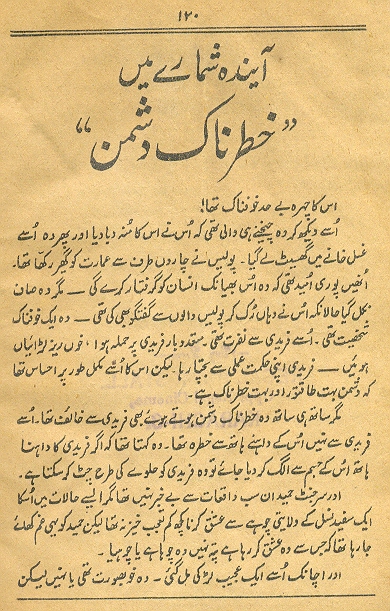 ۱۲۰
آیندہ شمارے میں
”خطرناک دشمن“
اس کا چہرہ بے حد خوفناک تھا!
اُسے دیکھ کر وہ چیخنے ہی والی تھی کہ اُس نے اس کا منہ دبا دیا اور پھر وہ اُسے
غسل خانے میں گھسیٹ لے گیا۔ پولیس نے چاروں طرف سے عمارت کو گھیر رکھا تھا۔
انھیں پوری اُمید تھی کہ وہ اُس بھیانک انسان کو گرفتار کر لے گی — مگر وہ صاف
نکل گیا حالانکہ اُس نے وہاں رُک کر پولیس والوں سے گفتگو بھی کی تھی — وہ ایک خوفناک
شخصیت تھی۔ اُسے فریدی سے نفرت تھی۔ متعدد بار فریدی پر حملہ ہوا، خوں ریز لڑائیاں
ہوئیں — فریدی اپنی حکمت عملی سے بچتا رہا۔ لیکن اس کا اُسے مکمل طور پر احساس تھا
کہ دشمن بہت طاقتور اور بہت خطرناک ہے۔
مگر ساتھ ہی ساتھ وہ خطرناک دشمن ہوتے ہوئے بھی فریدی سے خائف تھا۔ اُسے
فریدی سے نہیں اُس کے داہنے ہاتھ سے خطرہ تھا۔ وہ کہتا تھا کہ اگر فریدی کا داہنا
ہاتھ اُس کے جسم سے الگ کر دیا جائے تو وہ فریدی کو حلوے کی طرح چٹ کر سکتا ہے۔
اور سرجنٹ حمید ان سب واقعات سے بے خبر تو نہیں تھا مگر ایسے حالات میں اُسکا
ایک سفید نسل کے ولایتی چوہے سے عشق کرنا کچھ کم تعجب خیز نہ تھا لیکن حمید کو یہی غم کھائے
جا رہا تھا کہ جس سے وہ عشق کر رہا ہے پتہ نہیں وہ چوہا ہے یا چوہیا۔
اور اچانک اُسے ایک عجیب لڑکی مل گئی۔ وہ خوبصورت تھی یا نہیں لیکن